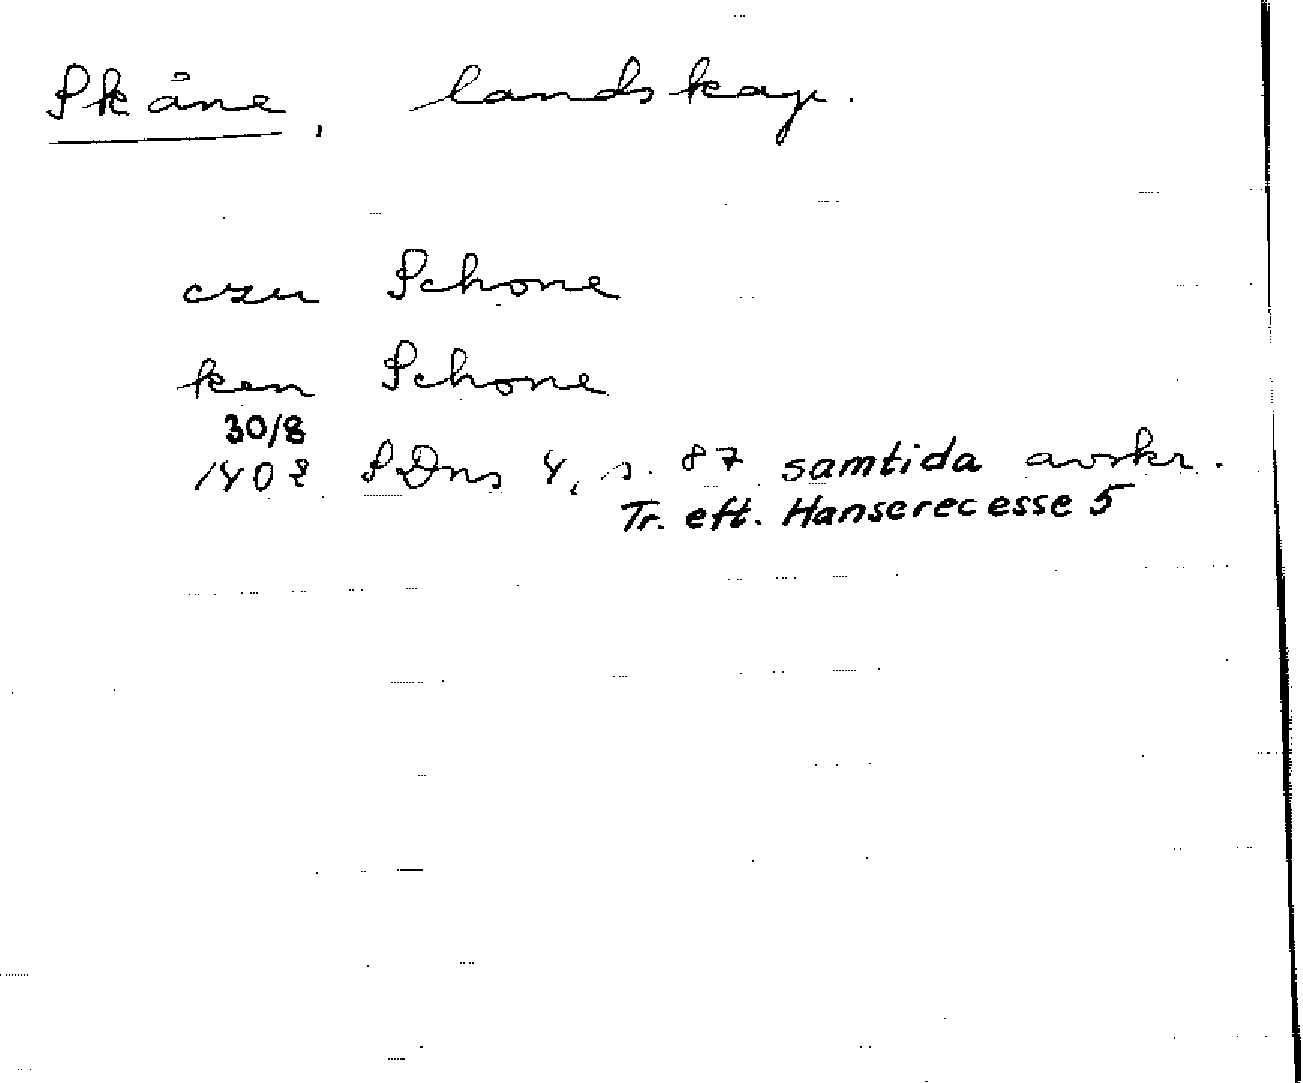 Skåne, landskap.
czu Schone
ken Schone
30/8
1402 SDns 4, s. 87 samtida avskr.
Tr. eft. Hanserecesse 5